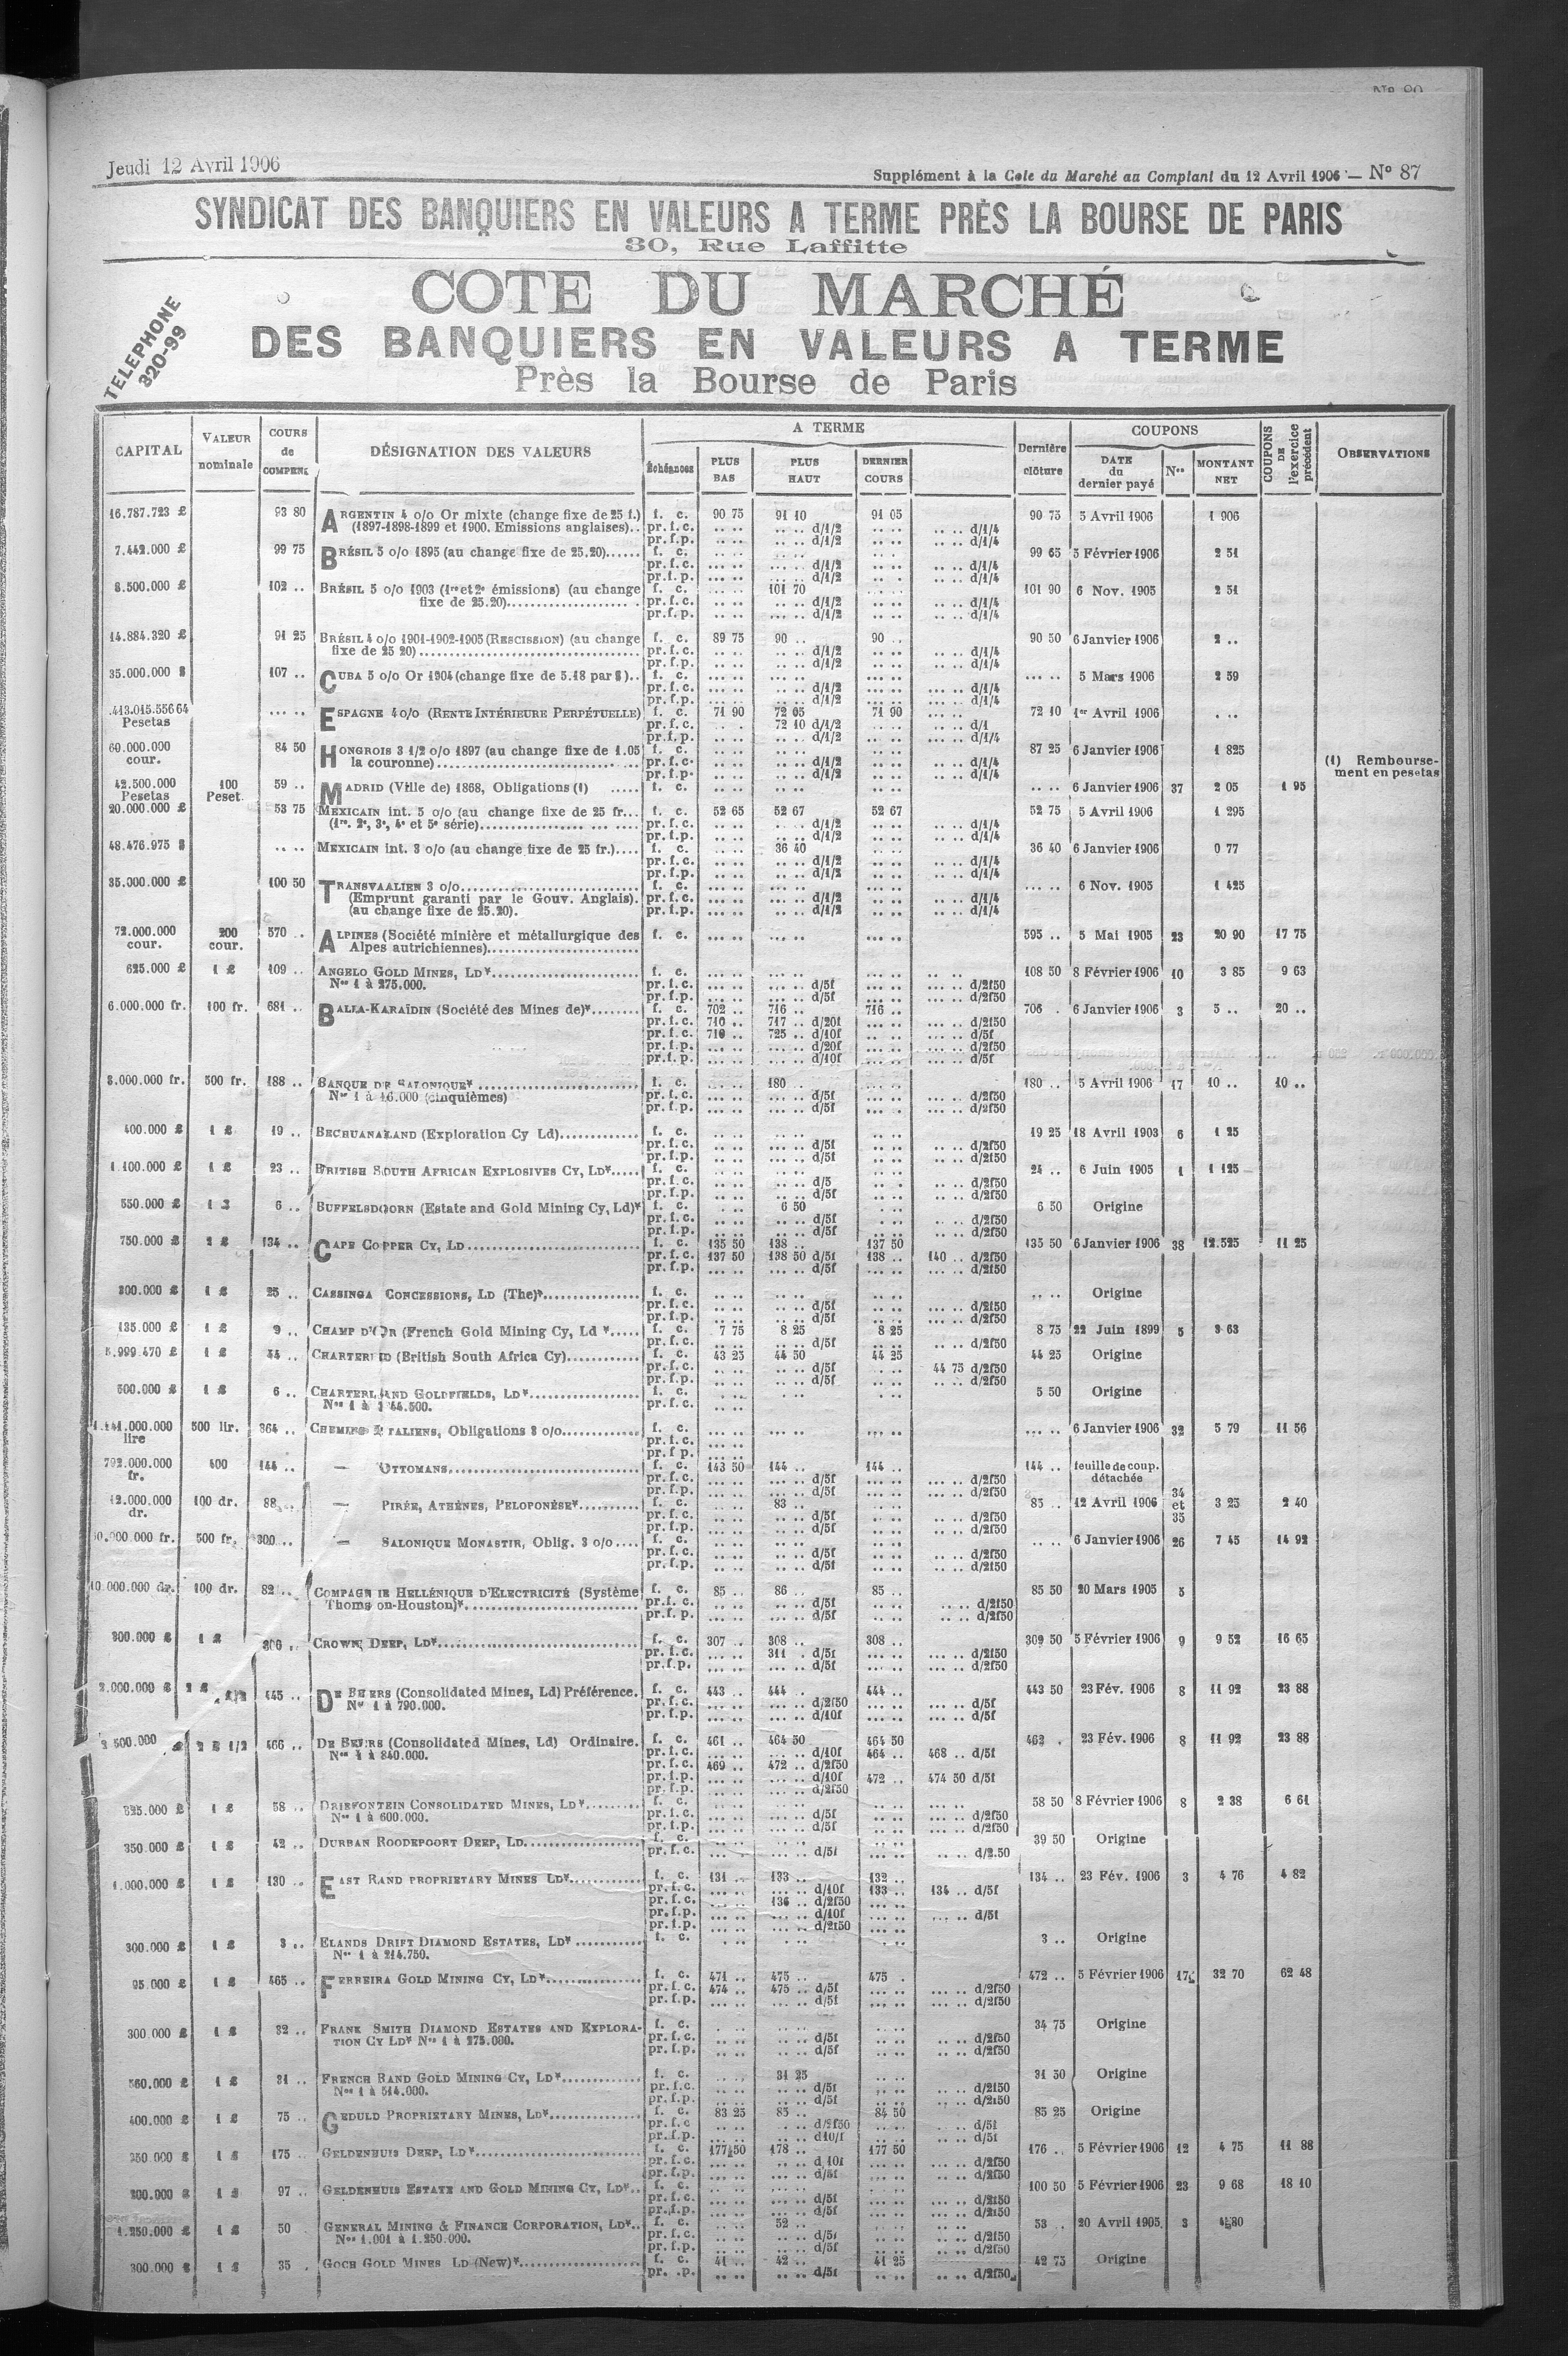 Jeudi 12 Avril 1906
Supplément à la Cote du Marché au Comptant du 12 Avril 1906 — N° 87
SYNDICAT DES BANQUIERS EN VALEURS A TERME PRÈS LA BOURSE DE PARIS
30, Rue Laffitte
TELEPHONE
320-99
COTE DU MARCHÉ
DES BANQUIERS EN VALEURS A TERME
Près la Bourse de Paris
CAPITAL | VALEUR nominale | COURS de COMPENS | DÉSIGNATION DES VALEURS | A TERME | Échéances | PLUS BAS | PLUS HAUT | DERNIER COURS | Dernière clôture | COUPONS | DATE du dernier payé | Nos | MONTANT NET | COUPONS DE l'exercice précédent | OBSERVATIONS
16.787.723 £ 93 80 ARGENTIN 4 o/o Or mixte (change fixe de 25 f.) f. c. 90 75 91 10 91 05 90 75 5 Avril 1906 1 906
(1897-1898-1899 et 1900. Emissions anglaises).. pr. f. c. d/1/2 d/1/4
pr. f. p. d/1/2 d/1/4
7.442.000 £ 99 75 BRÉSIL 5 o/o 1895 (au change fixe de 25.20)...... f. c. 99 65 5 Février 1906 2 51
pr. f. c. d/1/2 d/1/4
pr. f. p. d/1/2 d/1/4
8.500.000 £ 102 .. BRÉSIL 5 o/o 1903 (1re et 2e émissions) (au change f. c. 101 70 101 90 6 Nov. 1905 2 51
fixe de 25.20) pr. f. c. d/1/2 d/1/4
pr. f. p. d/1/2 d/1/4
14.884.320 £ 91 25 BRÉSIL 4 o/o 1901-1902-1905 (RESCISSION) (au change f. c. 89 75 90 .. 90 .. 90 50 6 Janvier 1906 2 ..
fixe de 25 20) pr. f. c. d/1/2 d/1/4
pr. f. p. d/1/2 d/1/4
35.000.000 $ 107 .. CUBA 5 o/o Or 1904 (change fixe de 5.18 par $).. f. c. 5 Mars 1906 2 59
pr. f. c. d/1/2 d/1/4
pr. f. p. d/1/2 d/1/4
.413.015.556 64 Pesetas ESPAGNE 4 o/o (RENTE INTÉRIEURE PERPÉTUELLE) f. c. 71 90 72 05 71 90 72 10 1er Avril 1906
pr. f. c. 72 10 d/1/2 d/1
pr. f. p. d/1/2 d/1/4
60.000.000 cour. 84 50 HONGROIS 3 1/2 o/o 1897 (au change fixe de 1.05 f. c. 87 25 6 Janvier 1906 1 825
la couronne) pr. f. c. d/1/2 d/1/4
pr. f. p. d/1/2 d/1/4
(1) Rembourse-
ment en pesetas
42.500.000 Pesetas 100 Peset. 59 .. MADRID (Ville de) 1868, Obligations (1) f. c. 6 Janvier 1906 37 2 05 1 95
20.000.000 £ 53 75 MEXICAIN int. 5 o/o (au change fixe de 25 fr... f. c. 52 65 52 67 52 67 52 75 5 Avril 1906 1 295
(1re, 2e, 3e, 4e et 5e série) pr. f. c. d/1/2 d/1/4
pr. f. p. d/1/2 d/1/4
48.476.975 $ MEXICAIN int. 3 o/o (au change fixe de 25 fr.).... f. c. 36 40 36 40 6 Janvier 1906 0 77
pr. f. c. d/1/2 d/1/4
pr. f. p. d/1/2 d/1/4
35.000.000 £ 100 50 TRANSVAALIEN 3 o/o f. c. 6 Nov. 1905 1 425
(Emprunt garanti par le Gouv. Anglais). pr. f. c. d/1/2 d/1/4
(au change fixe de 25.20). pr. f. p. d/1/2 d/1/4
72.000.000 cour. 200 cour. 570 .. ALPINES (Société minière et métallurgique des f. c. 595 .. 5 Mai 1905 23 20 90 17 75
Alpes autrichiennes)
625.000 £ 1 £ 109 .. ANGELO GOLD MINES, LD* f. c. 108 50 8 Février 1906 10 3 85 9 63
Nos 1 à 275.000. pr. f. c. d/5f d/2f50
pr. f. p. d/5f d/2f50
6.000.000 fr. 100 fr. 681 .. BALIA-KARAÏDIN (Société des Mines de)* f. c. 702 .. 716 .. 716 .. 706 . 6 Janvier 1906 3 5 .. 20 ..
pr. f. c. 710 .. 717 .. d/20f d/2f50
pr. f. c. 710 .. 725 .. d/10f d/5f
pr. f. p. d/20f d/2f50
pr. f. p. d/10f d/5f
8.000.000 fr. 500 fr. 188 .. BANQUE DE SALONIQUE* f. c. 180 .. 180 .. 5 Avril 1906 17 10 .. 10 ..
Nos 1 à 16.000 (cinquièmes) pr. f. c. d/5f d/2f50
pr. f. p. d/5f d/2f50
400.000 £ 1 £ 19 .. BECHUANALAND (Exploration Cy Ld) f. c. 19 25 18 Avril 1903 6 1 25
pr. f. c. d/5f d/2f50
pr. f. p. d/5f d/2f50
1.100.000 £ 1 £ 23 .. BRITISH SOUTH AFRICAN EXPLOSIVES CY, LD* f. c. 24 .. 6 Juin 1905 1 1 125
pr. f. c. d/5 d/2f50
pr. f. p. d/5f d/2f50
550.000 £ 6 .. BUFFELSDOORN (Estate and Gold Mining Cy, Ld)* f. c. 6 50 6 50 Origine
pr. f. c. d/5f d/2f50
pr. f. p. d/5f d/2f50
750.000 £ 2 £ 134 .. CAPE COPPER CY, LD f. c. 135 50 138 .. 137 50 135 50 6 Janvier 1906 38 12.525 11 25
pr. f. c. 137 50 138 50 d/5f 138 .. 140 .. d/2f50
pr. f. p. d/5f d/2f50
200.000 £ 1 £ 25 .. CASSINGA CONCESSIONS, LD (The)* f. c. Origine
pr. f. c. d/5f d/2f50
pr. f. p. d/5f d/2f50
135.000 £ 1 £ 9 .. CHAMP D'OR (French Gold Mining Cy, Ld *..... f. c. 7 75 8 25 8 25 8 75 22 Juin 1899 5 3 63
pr. f. c. d/5f d/2f50
5.999.470 £ 1 £ 44 .. CHARTERED (British South Africa Cy) f. c. 43 25 44 50 44 25 44 25 Origine
pr. f. c. d/5f 44 75 d/2f50
pr. f. p. d/5f d/2f50
500.000 £ 1 £ 6 .. CHARTERLAND GOLDFIELDS, LD* f. c. 5 50 Origine
pr. f. c.
1.141.000.000 lire 500 lir. 364 .. CHEMINS ITALIENS, Obligations 3 o/o f. c. 6 Janvier 1906 32 5 79 11 56
pr. f. c.
pr. f. p.
792.000.000 fr. 400 144 .. — OTTOMANS f. c. 143 50 144 .. 144 .. 144 .. feuille de coup. détachée
pr. f. c. d/5f d/2f50
pr. f. p. d/5f d/2f50
12.000.000 dr. 100 dr. 88 .. — PIRÉE, ATHÈNES, PELOPONÈSE* f. c. 83 .. 85 .. 12 Avril 1906 34 et 35 3 25 2 40
pr. f. c. d/5f d/2f50
pr. f. p. d/5f d/2f50
0.000.000 fr. 500 fr. 300 .. — SALONIQUE MONASTIR, Oblig. 3 o/o.... f. c. 6 Janvier 1906 26 7 45 14 92
pr. f. c. d/5f d/2f50
pr. f. p. d/5f d/2f50
10.000.000 dr. 100 dr. 82 .. COMPAGNIE HELLÉNIQUE D'ELECTRICITÉ (Système f. c. 85 .. 86 .. 85 .. 85 50 20 Mars 1905 5
Thomson-Houston)* pr. f. c. d/5f d/2f50
pr. f. p. d/5f d/2f50
300.000 £ 1 £ 306 .. CROWN DEEP, LD* f. c. 307 .. 308 .. 308 .. 309 50 5 Février 1906 9 9 52 16 65
pr. f. c. 311 . d/5f d/2f50
pr. f. p. d/5f d/2f50
2.000.000 £ 445 .. DE BEERS (Consolidated Mines, Ld) Préférence. f. c. 443 .. 444 .. 444 .. 443 50 23 Fév. 1906 8 11 92 23 88
Nos 1 à 790.000. pr. f. c. d/2f50 d/5f
pr. f. p. d/10f d/5f
500.000 2 £ 1/2 466 .. DE BEERS (Consolidated Mines, Ld) Ordinaire. f. c. 461 .. 464 50 464 50 462 . 23 Fév. 1906 8 11 92 23 88
Nos 1 à 840.000. pr. f. c. d/10f 464 .. 468 .. d/5f
pr. f. c. 469 .. 472 .. d/2f50
pr. f. p. d/10f 472 .. 474 50 d/5f
pr. f. p. d/2f50
325.000 £ 1 £ 58 .. DRIEFONTEIN CONSOLIDATED MINES, LD* f. c. 58 50 8 Février 1906 8 2 38 6 61
Nos 1 à 600.000. pr. f. c. d/5f d/2f50
pr. f. p. d/5f d/2f50
350.000 £ 1 £ 42 .. DURBAN ROODEPOORT DEEP, LD f. c. 39 50 Origine
pr. f. c. d/5f d/2.50
1.000.000 £ 1 £ 130 .. EAST RAND PROPRIETARY MINES LD* f. c. 131 .. 133 .. 132 .. 134 .. 23 Fév. 1906 3 4 76 4 82
pr. f. c. d/10f 133 .. 134 .. d/5f
pr. f. c. 136 .. d/2f50
pr. f. p. d/10f d/5f
pr. f. p. d/2f50
300.000 £ 1 £ 3 .. ELANDS DRIFT DIAMOND ESTATES, LD* f. c. 3 .. Origine
Nos 1 à 214.750.
95.000 £ 1 £ 465 .. FERREIRA GOLD MINING CY, LD* f. c. 471 .. 475 .. 475 . 472 .. 5 Février 1906 17 32 70 62 48
pr. f. c. 474 .. 475 .. d/5f d/2f50
pr. f. p. d/5f d/2f50
300.000 £ 1 £ 32 .. FRANK SMITH DIAMOND ESTATES AND EXPLORA- f. c. 34 75 Origine
TION CY LD* Nos 1 à 275.000. pr. f. c. d/5f d/2f50
pr. f. p. d/5f d/2f50
560.000 £ 1 £ 31 .. FRENCH RAND GOLD MINING CY, LD* f. c. 31 25 31 50 Origine
Nos 1 à 514.000. pr. f. c. d/5f d/2f50
pr. f. p. d/5f d/2f50
400.000 £ 1 £ 75 .. GEDULD PROPRIETARY MINES, LD* f. c. 83 25 85 .. 84 50 85 25 Origine
pr. f. c. d/2f50 d/5f
pr. f. p. d10/f d/5f
350.000 £ 1 £ 175 .. GELDENHUIS DEEP, LD* f. c. 177 50 178 .. 177 50 176 .. 5 Février 1906 12 4 75 11 88
pr. f. c. d 10f d/2f50
pr. f. p. d/5f d/2f50
200.000 £ 1 £ 97 .. GELDENHUIS ESTATE AND GOLD MINING CY, LD*.. f. c. 100 50 5 Février 1906 23 9 68 18 10
pr. f. c. d/5f d/2f50
pr. f. p. d/5f d/2f50
1.250.000 £ 1 £ 50 GENERAL MINING & FINANCE CORPORATION, LD*.. f. c. 52 .. 53 . 20 Avril 1905 3
Nos 1.001 à 1.250.000. pr. f. c. d/5f d/2f50
pr. f. p. d/5f d/2f50
300.000 £ 1 £ 35 . GOCH GOLD MINES LD (New)* f. c. 41 .. 42 .. 41 25 42 75 Origine
pr. .p. d/5f d/2f50